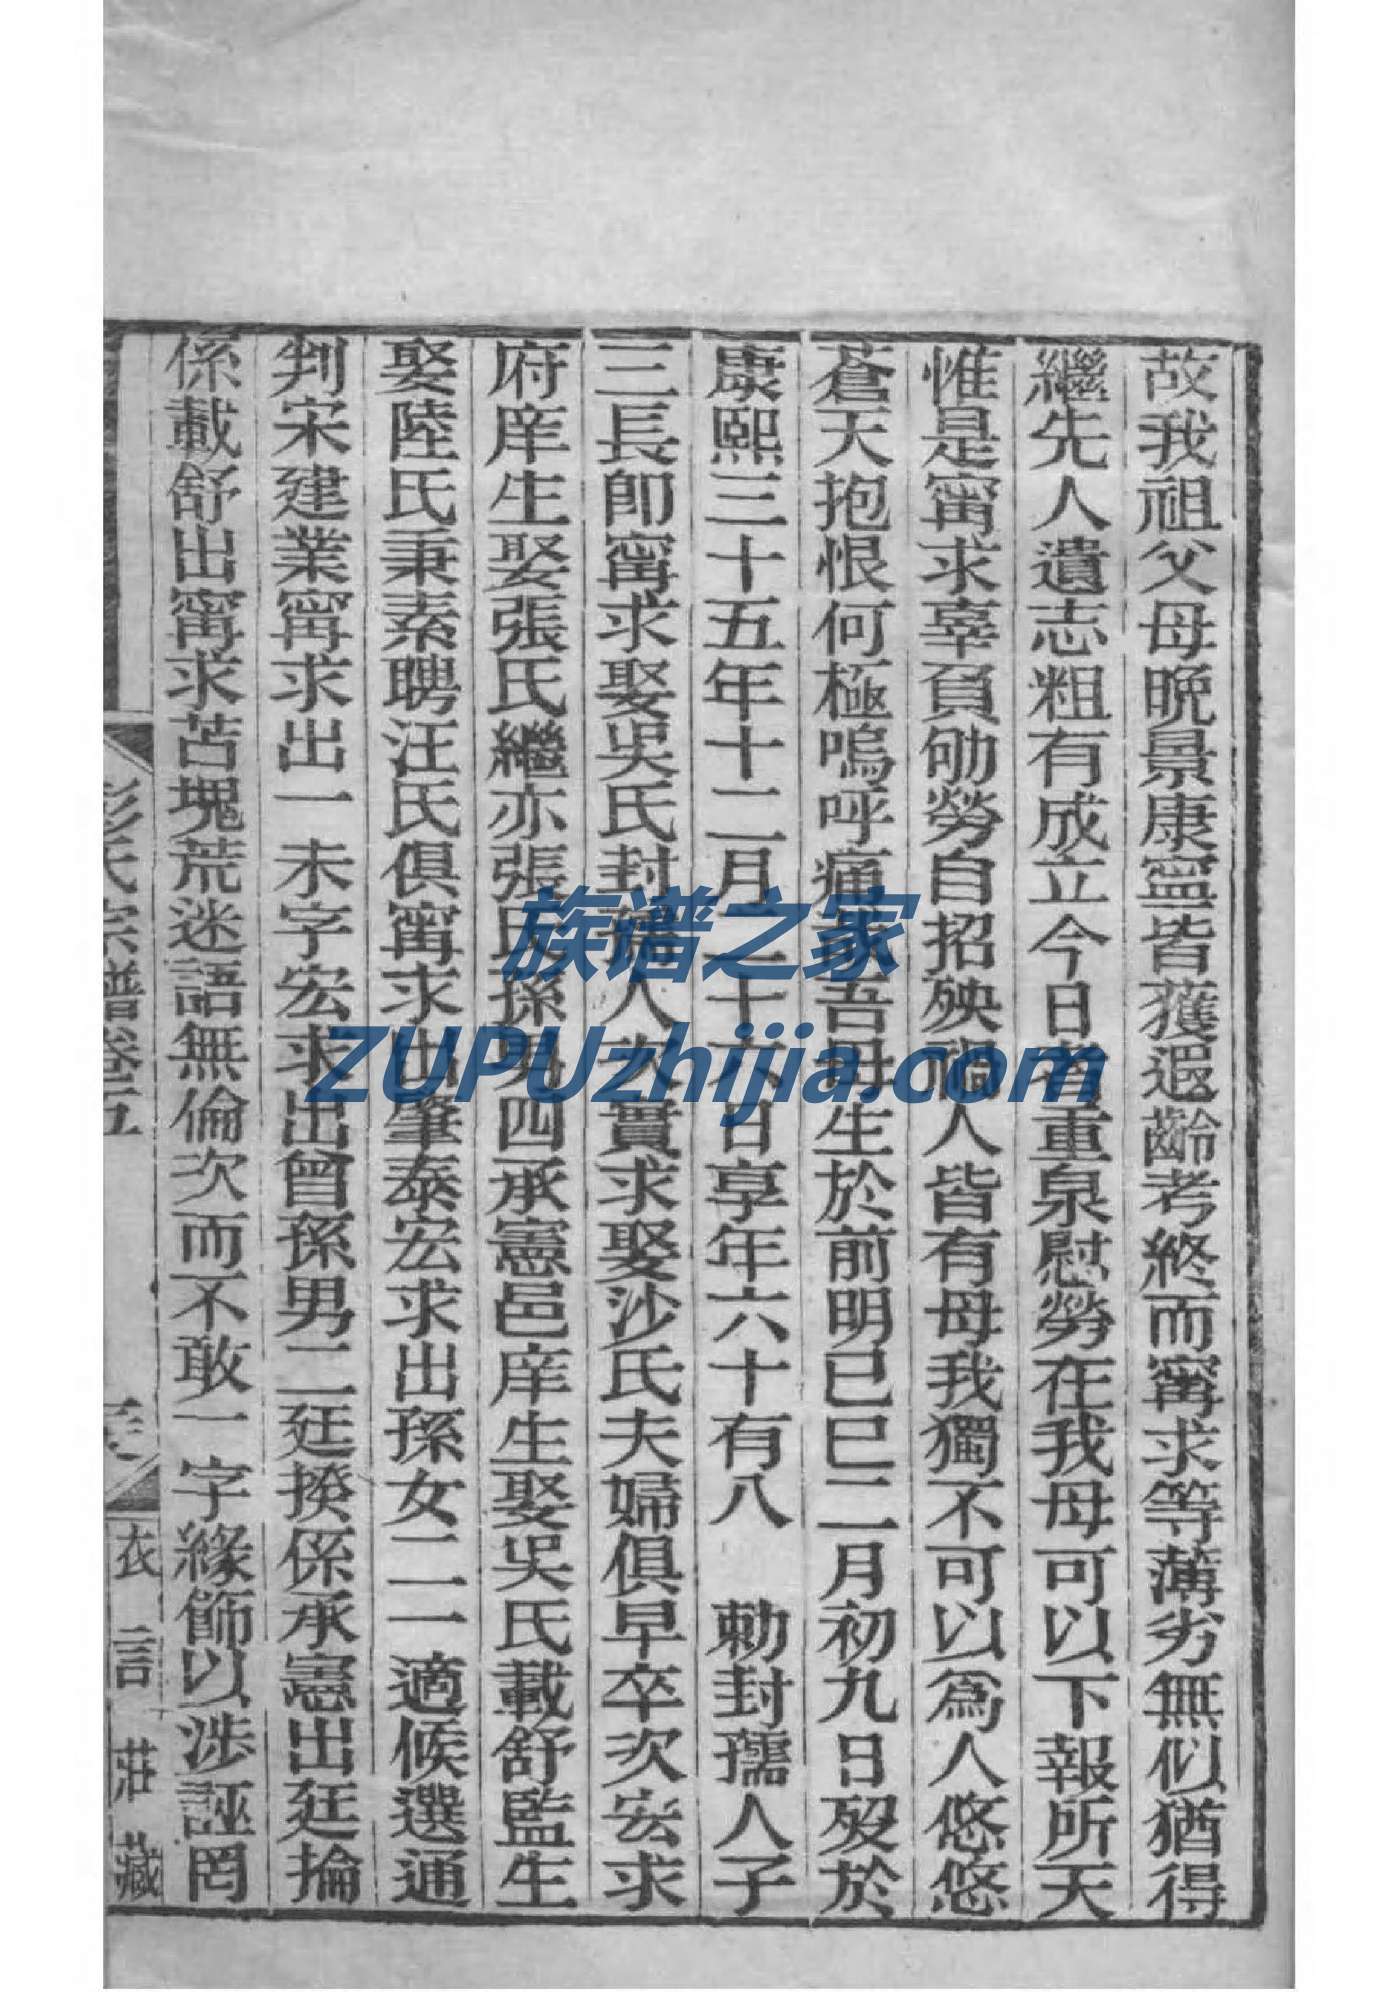 故我祖父母晩景康寧皆獲遐齡考終而甯求等薄劣無似猶得
繼先人遺志粗有成立今日者重泉慰勞在我母可以下報所天
惟是甯求辜負劬勞自招殃禍人皆有母我獨不可以爲人悠悠
蒼天抱恨何極嗚呼痛哉吾母生於前明已巳二月初九日歿於
康熙三十五年十二月二十六日享年六十有八 勅封孺人子
三長卽甯求娶吳氏封孺人次實求娶沙氏夫婦俱早卒次宏求
府庠生娶張氏繼亦張氏孫男四承憲邑庠生娶吳氏載舒監生
娶陸氏秉素聘汪氏俱甯求出肇泰宏求出孫女二一適候選通
判宋建業甯求出一未字宏求出曾孫男二廷揆係承憲出廷掄
係載舒出甯求苫塊荒迷語無倫次而不敢一字緣飾以涉誣罔
彭氏宗譜卷五
衣言莊藏
族谱之家
ZUPUzhijia.com